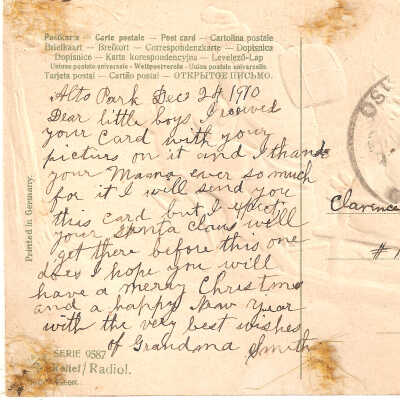 Postkarte — Carte postale — Post card — Cartolina postale
Briefkaart — Brefkort — Correspondenzkarte — Dopisnica
Dopisnice — Karta korespondencyjna — Levelező-Lap
Union postale universelle — Weltpostverein — Unione postale universelle
Tarjeta postal — Cartão postal — ОТКРЫТОЕ ПИСЬМО.
Alto Park Dec 24 1910
Dear little boys I recived
your card with your
picture on it and I thank
your Mama ever so much
for it I will send you
this card but I expect
your Santa Claus will
get there before this one
does I hope you will
have a merry Christmas
and a happy New Year
with the very best wishes
of Grandma Smith
Printed in Germany.
SERIE 9587
Relief/Radiol.
Clarence
#